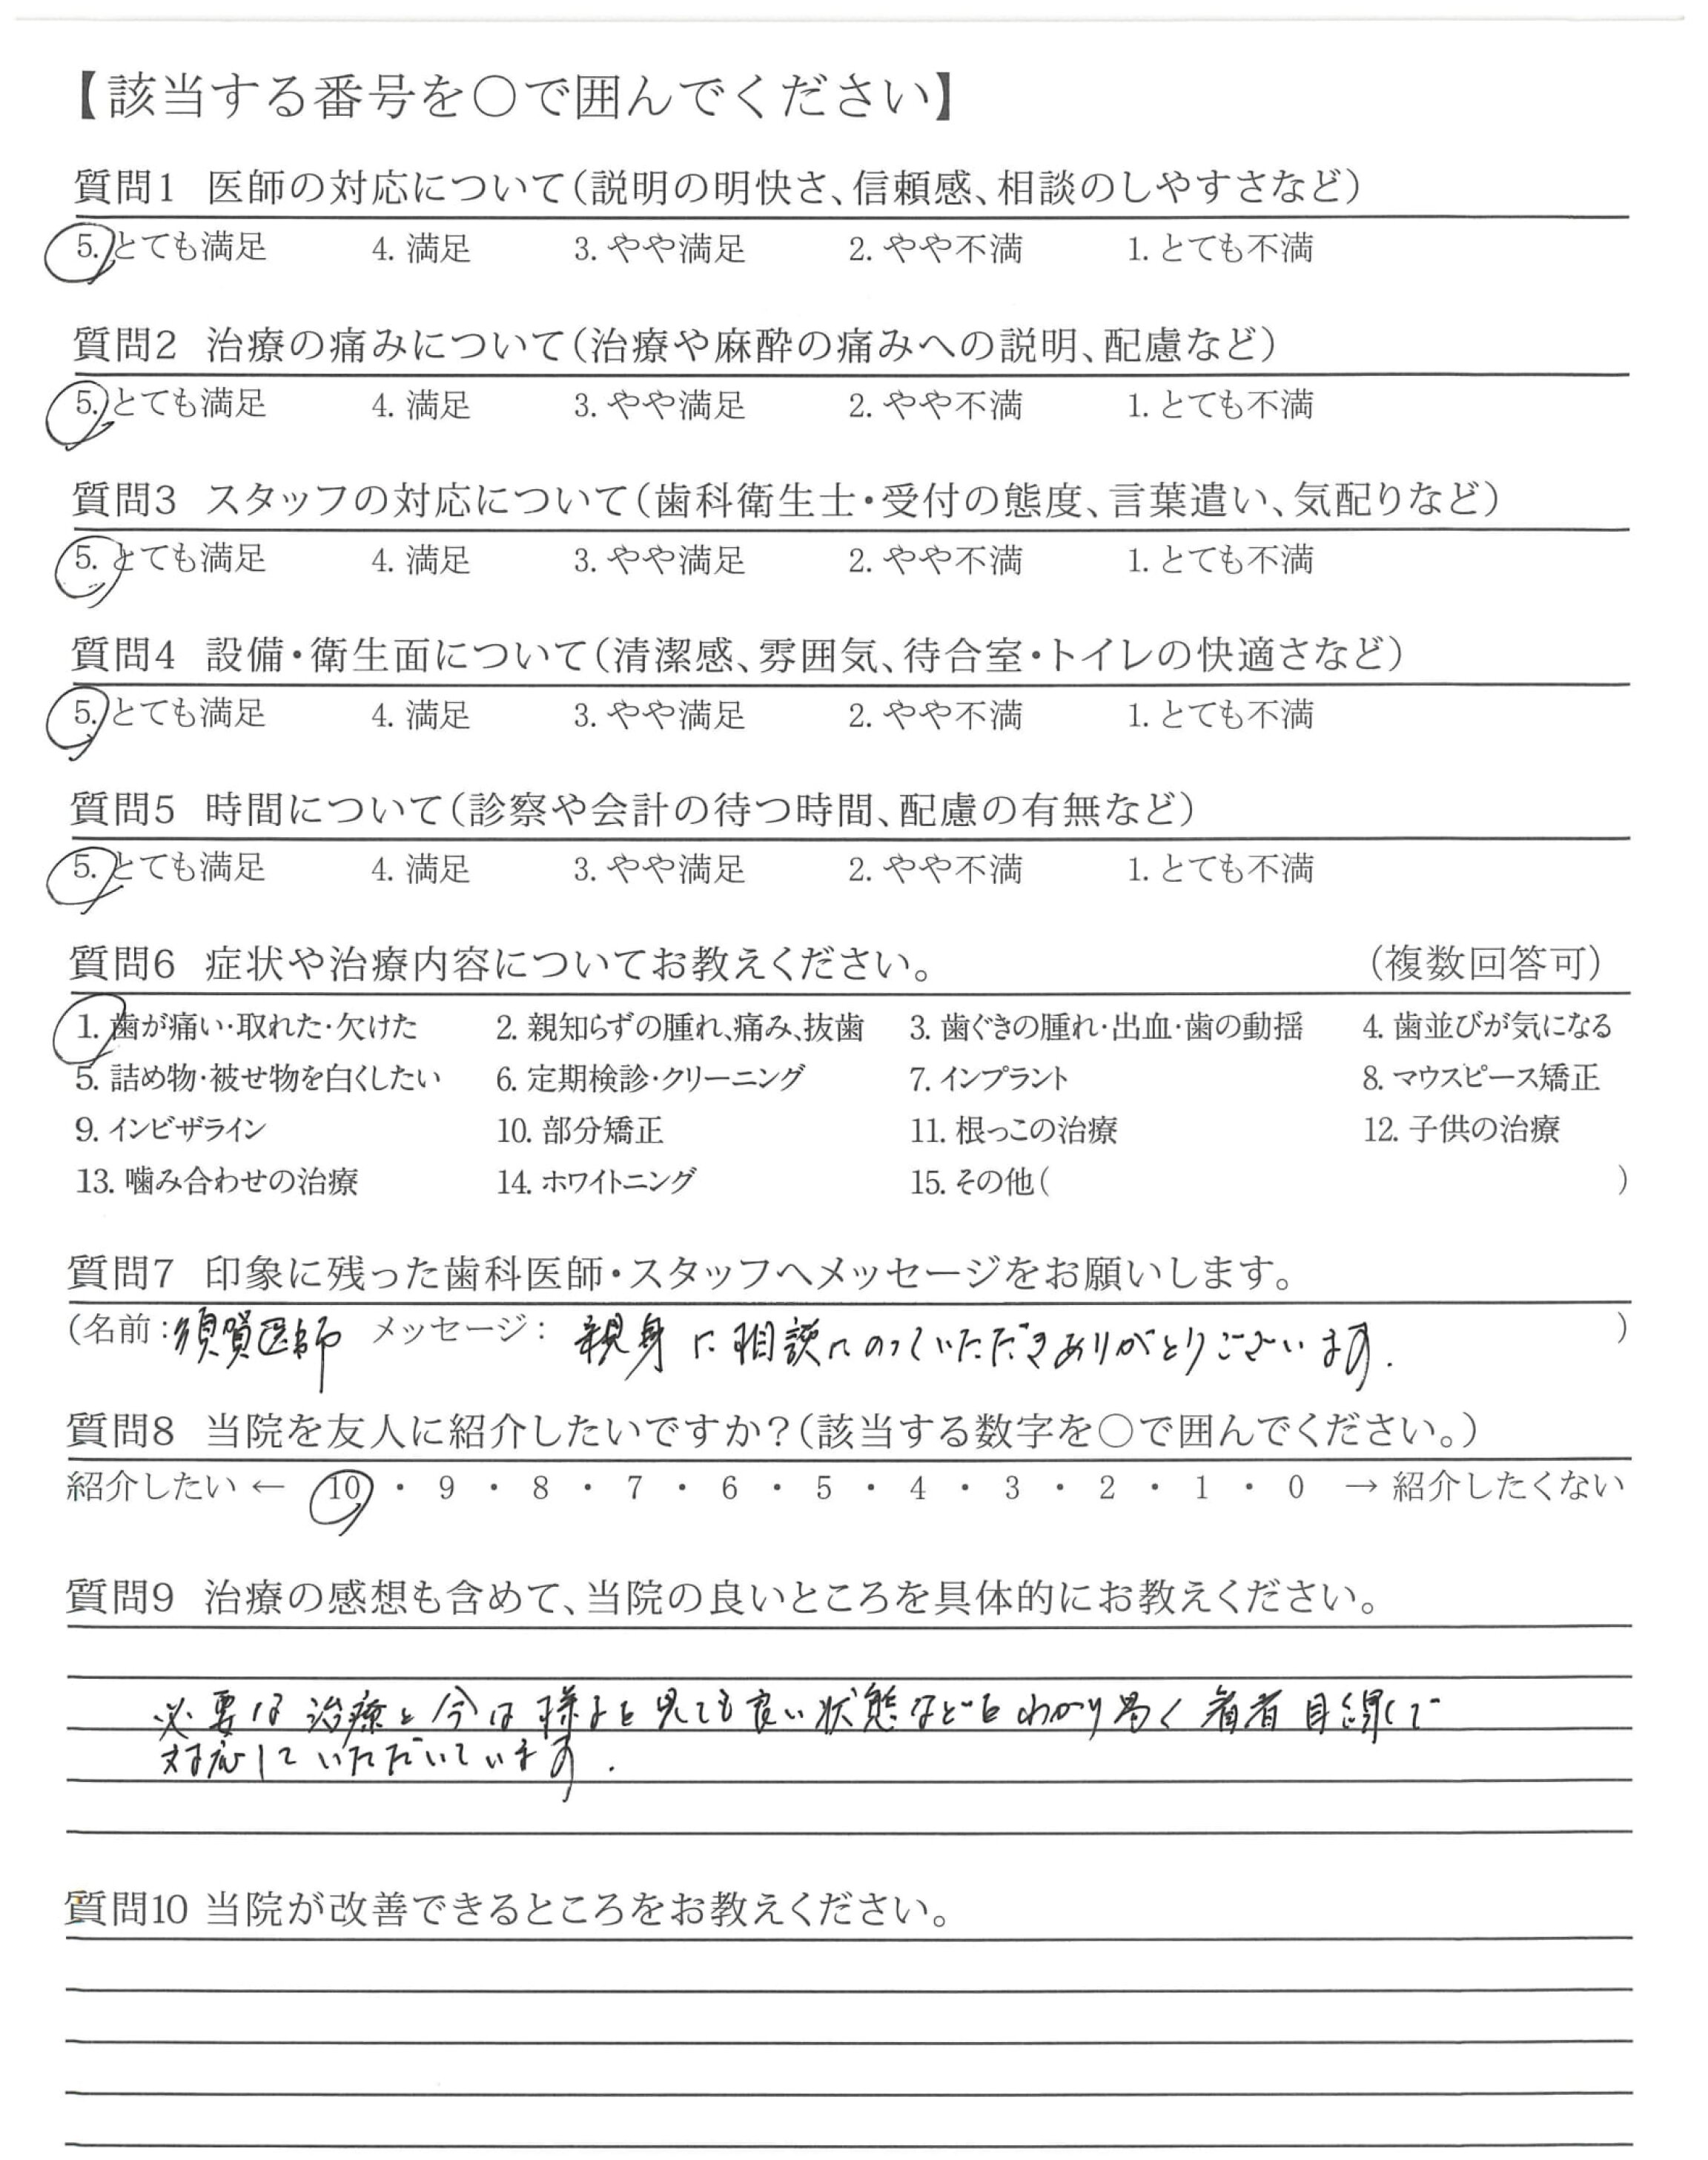 【該当する番号を○で囲んでください】
質問1 医師の対応について(説明の明快さ、信頼感、相談のしやすさなど)
5. とても満足 4. 満足 3. やや満足 2. やや不満 1. とても不満
質問2 治療の痛みについて(治療や麻酔の痛みへの説明、配慮など)
5. とても満足 4. 満足 3. やや満足 2. やや不満 1. とても不満
質問3 スタッフの対応について(歯科衛生士・受付の態度、言葉遣い、気配りなど)
5. とても満足 4. 満足 3. やや満足 2. やや不満 1. とても不満
質問4 設備・衛生面について(清潔感、雰囲気、待合室・トイレの快適さなど)
5. とても満足 4. 満足 3. やや満足 2. やや不満 1. とても不満
質問5 時間について(診察や会計の待つ時間、配慮の有無など)
5. とても満足 4. 満足 3. やや満足 2. やや不満 1. とても不満
質問6 症状や治療内容についてお教えください。 (複数回答可)
1. 歯が痛い・取れた・欠けた 2. 親知らずの腫れ、痛み、抜歯 3. 歯ぐきの腫れ・出血・歯の動揺 4. 歯並びが気になる
5. 詰め物・被せ物を白くしたい 6. 定期検診・クリーニング 7. インプラント 8. マウスピース矯正
9. インビザライン 10. 部分矯正 11. 根っこの治療 12. 子供の治療
13. 噛み合わせの治療 14. ホワイトニング 15. その他( )
質問7 印象に残った歯科医師・スタッフへメッセージをお願いします。
(名前:須賀医師 メッセージ: 親身に相談にのっていただきありがとうございます. )
質問8 当院を友人に紹介したいですか?(該当する数字を○で囲んでください。)
紹介したい ← 10 ・ 9 ・ 8 ・ 7 ・ 6 ・ 5 ・ 4 ・ 3 ・ 2 ・ 1 ・ 0 → 紹介したくない
質問9 治療の感想も含めて、当院の良いところを具体的にお教えください。
必要な治療と今は様子を見ても良い状態などをわかり易く 者目線で
対応していただいています.
質問10 当院が改善できるところをお教えください。